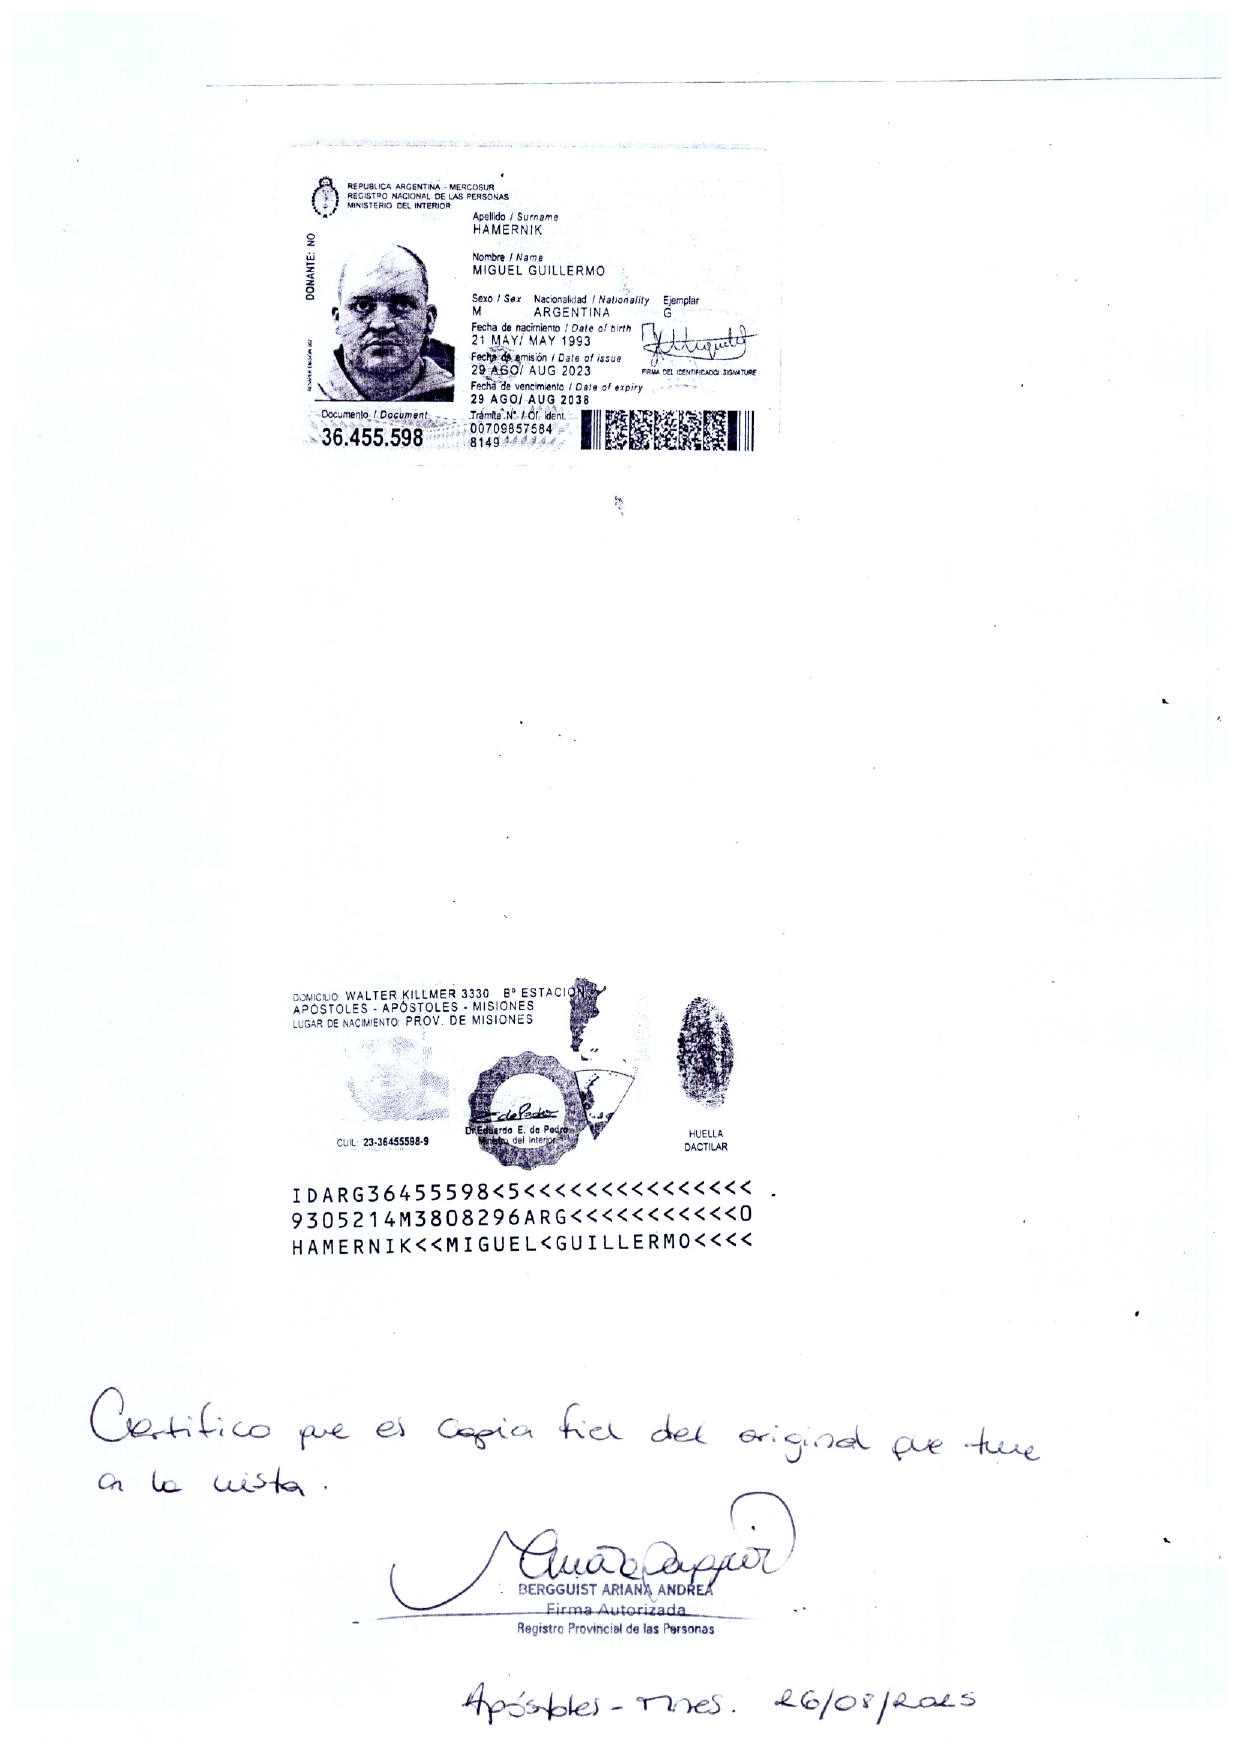 REPUBLICA ARGENTINA - MERCOSUR
REGISTRO NACIONAL DE LAS PERSONAS
MINISTERIO DEL INTERIOR
Apellido / Surname
HAMERNIK
Nombre / Name
MIGUEL GUILLERMO
Sexo / Sex Nacionalidad / Nationality Ejemplar
M ARGENTINA G
Fecha de nacimiento / Date of birth
21 MAY/ MAY 1993
Fecha de emisión / Date of issue
29 AGO/ AUG 2023
FIRMA DEL IDENTIFICADO/ SIGNATURE
Fecha de vencimiento / Date of expiry
29 AGO/ AUG 2038
DONANTE: NO
Documento / Document
36.455.598
Trámite N° / Of. Ident.
00709857584
8149
DOMICILIO: WALTER KILLMER 3330 B° ESTACION
APOSTOLES - APÓSTOLES - MISIONES
LUGAR DE NACIMIENTO: PROV. DE MISIONES
Dr. Eduardo E. de Pedro
Ministro del Interior
CUIL: 23-36455598-9
HUELLA
DACTILAR
IDARG36455598<5<<<<<<<<<<<<<<<
9305214M3808296ARG<<<<<<<<<<<0
HAMERNIK<<MIGUEL<GUILLERMO<<<<
Certifico que es copia fiel del original que tuve
en la vista.
BERGGUIST ARIANA ANDREA
Firma Autorizada
Registro Provincial de las Personas
Apóstoles - Mnes. 26/08/2025